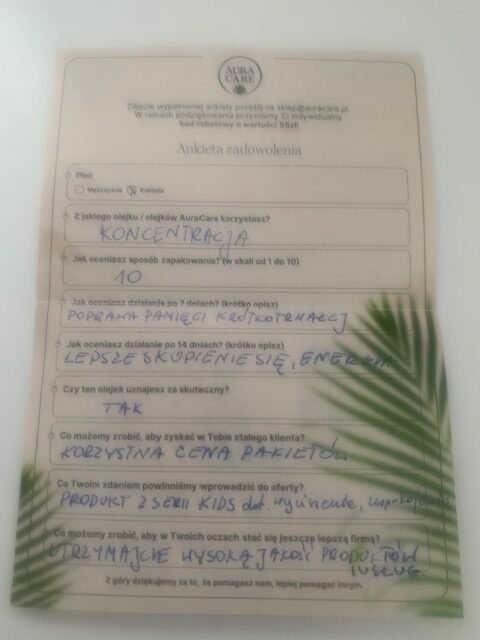 AURA
CARE
Zdjęcie wypełnionej ankiety prześlij na sklep@auracare.pl.
W ramach podziękowania przyznamy Ci indywidualny
kod rabatowy o wartości 55zł!
Ankieta zadowolenia
Płeć
Mężczyzna Kobieta
Z jakiego olejku / olejków AuraCare korzystasz?
KONCENTRACJA
Jak oceniasz sposób zapakowania? (w skali od 1 do 10)
10
Jak oceniasz działanie po 7 dniach? (krótko opisz)
POPRAWA PAMIĘCI KRÓTKOTRWAŁEJ
Jak oceniasz działanie po 14 dniach? (krótko opisz)
LEPSZE SKUPIENIE SIĘ, ENERGIA
Czy ten olejek uznajesz za skuteczny?
TAK
Co możemy zrobić, aby zyskać w Tobie stałego klienta?
KORZYSTNA CENA PAKIETÓW
Co Twoim zdaniem powinniśmy wprowadzić do oferty?
PRODUKT Z SERII KIDS dot. wyciszenie,
Co możemy zrobić, aby w Twoich oczach stać się jeszcze lepszą firmą?
UTRZYMAJCIE WYSOKĄ JAKOŚĆ PRODUKTÓW
I USŁUG
Z góry dziękujemy za to, że pomagasz nam, lepiej pomagać innym.